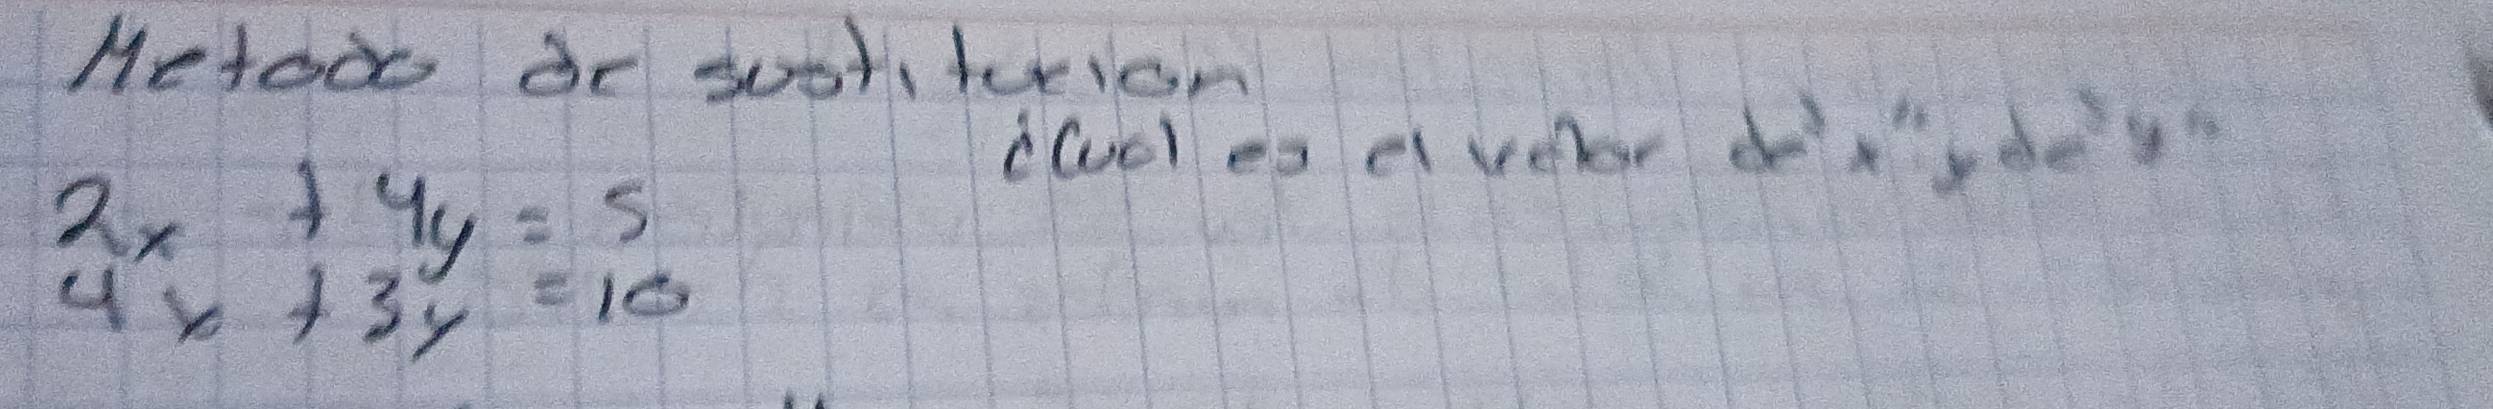 Metodo de sustitucion
¿Cual es el valor de "x" y de "y"
2x + 4y = 5
4x + 3y = 10